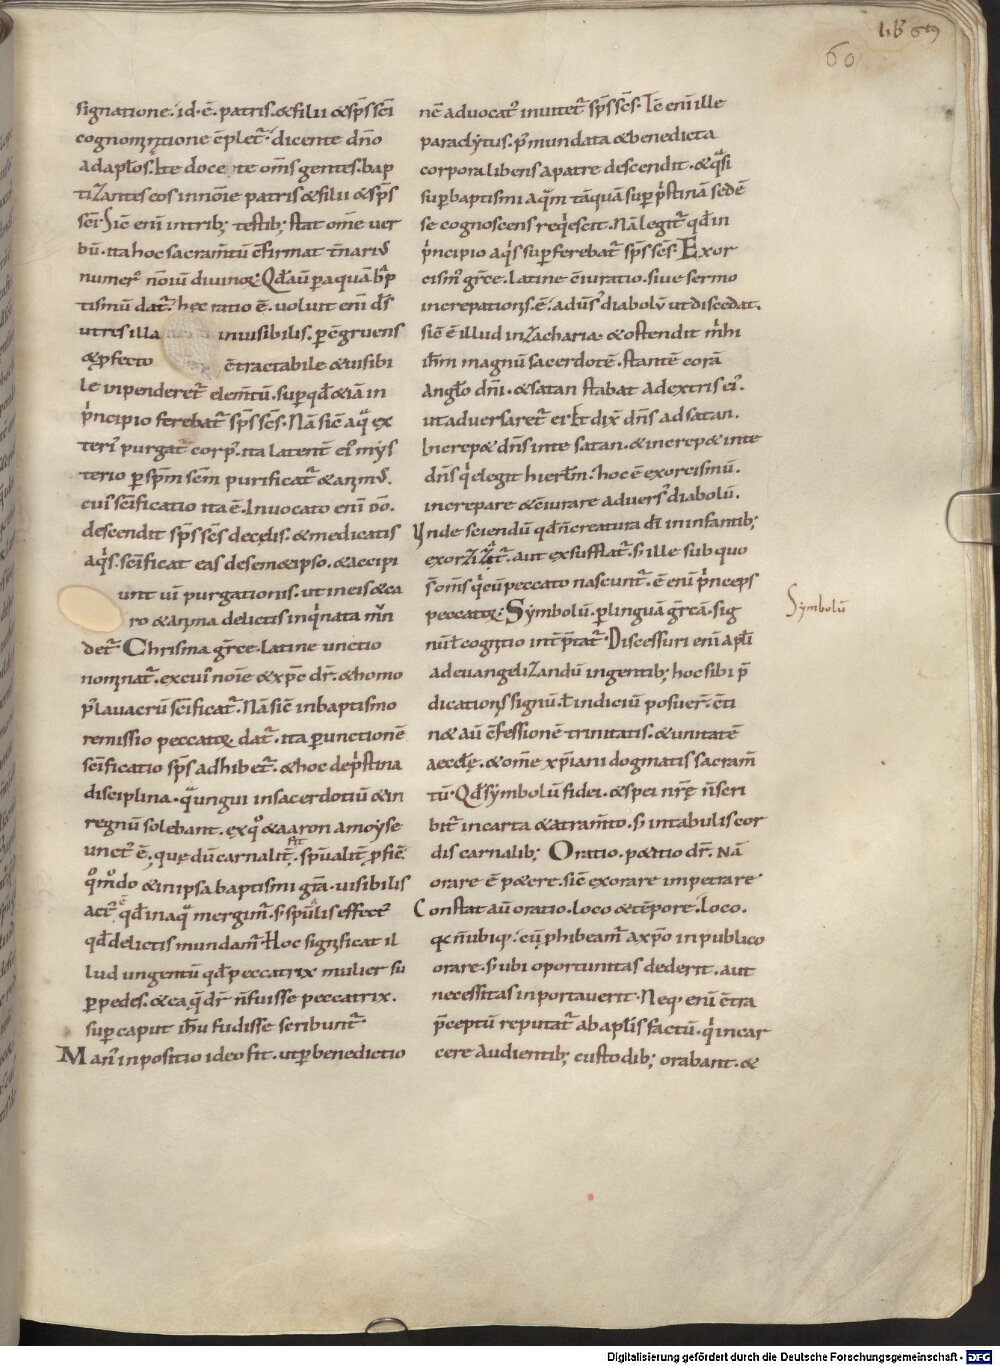 lib 6t9
60
signatione. id. ē. patris. & filii & sp̄s sc̄i
cognominatione c̄plet᷑. dicente dn̄o
ad apl̄os. Ite docete om̄s gentes. bap
tizantes eos in nōie patris & filii & sp̄s
sc̄i. Sic̄ eni in trib; testib; stat om̄e ver
bū. ita hoc sacram̄tū c̄firmat t̄nariꝰ
numerꝰ nōiū divinoꝝ. Qd̄ aū p aquā bap
tismū dat᷑. hec ratio ē. voluit eni d̄s
ut res illa invisibilis. p c̄gruens
& pfecto c̄tractabile & visibi
le inpenderet᷑ elem̄tū. sup qd̄ & iā in
p̍ncipio ferebat᷑ sp̄s sc̄s. Nā sic̄ aq̄ ex
teriꝰ purgat᷑ corpꝰ. ita latent̄ eiꝰ mys
terio p sp̄m sc̄m purificat᷑ & animꝰ.
cuiꝰ sc̄ificatio ita ē. Invocato eni dō.
descendit sp̄s sc̄s de cęlis. & medicatis
aq̍s. sc̄ificat eas de semetipso. & accipi
unt vī purgationis. ut in eis & ca
ro & anima delictis inq̍nata mūn
det᷑. Chrisma grece. latine unctio
nominat᷑. ex cuiꝰ nōie & xp̄c dr̄. & homo
p̍ lavacrū sc̄ificat᷑. Nā sic̄ in baptismo
remissio peccatoꝝ dat᷑. ita p unctionē
sc̄ificatio sp̄s adhibet᷑. & hoc de p̍stina
disciplina. qua ungui in sacerdotiū & in
regnū solebant. ex qͦ & aaron a moyse
unctꝰ ē. quę dū carnalit᷑ fit. sp̄ualit᷑ pfic̄.
qͦm̊do & in ipsa baptismi gr̄a. visibilis
actꝰ. qd̄ in aq̄ mergim̄. s; sp̄u͛lis effectꝰ
qd̄ delictis mundam̄. Hoc significat il
lud ungentū qd̄ peccatrix mulier su
per pedes. & ea q̄ dr̄ n̄ fuisse peccatrix.
sup caput ih̄u fudisse scribunt᷑.
Manꝰ inpositio ideo fit. ut p benedictio
nē advocatꝰ invitet᷑ sp̄s sc̄s. Tc̄ eni ille
paraclytus. pꝰ mundata & benedicta
corpora libens a patre descendit. & q̄si
sup baptismi aquā tāquā sup p̍stinā sedē
se cognoscens req̍escit. Nā legit᷑ qd̄ in
p̍ncipio aq̍s sup ferebat᷑ sp̄s sc̄s. Exor
cismꝰ grece. latine c̄iuratio. sive sermo
increpationis. ē. adūsꝰ diabolū ut discedat.
sic̄ ē illud in zacharia. & ostendit mihi
ih̄m magnū sacerdotē. stantē corā
anglo dn̄i. & satan stabat a dextris eiꝰ.
ut adversaret᷑ ei. Et dix̄ dn̄s ad satan.
Increp& dn̄s in te satan. & increp& in te
dn̄s q̍ elegit hierlm̄. hoc ē exorcismū.
increpare & c̄iurare adversꝰ diabolū.
Vnde sciendū qd̄ n̄ creatura dī in infantib;
exorzizat᷑. aut exsufflat᷑. s; ille sub quo
s̄ om̄s q̍ cū peccato nascunt᷑. ē eni p̍nceps
peccatoꝝ. Symbolū. p linguā gr̄cā. sig
nū ł cognitio int̄p̄tat᷑. Discessuri eni apl̄i
ad euangelizandū in gentib; hoc sibi p̄
dicationis signū. ł indiciū posuer̄. c̄ti
n& aū c̄fessionē trinitatis. & unitatē
aecclę. & om̄e xp̄iani dogmatis sacram̄
tū. Qd̄ symbolū fidei. & spei nr̄ę n̄ scri
bit᷑ in carta & atram̄to. s; in tabulis cor
dis carnalib; Oratio. petitio dr̄. Nā
orare ē petere. sic̄ exorare impetrare.
Constat aū oratio. loco & tēpore. loco.
q; n̄ ubiq;. cū phibeam̄ a xp̄o in publico
orare. s; ubi oportunitas dederit. aut
necessitas inportaverit. Neq; eni c̄tra
p̄ceptū reputat᷑ ab apl̄is factū. q̍ in car
cere audientib; custodib; orabant. &
Symbolū
Digitalisierung gefördert durch die Deutsche Forschungsgemeinschaft - DFG